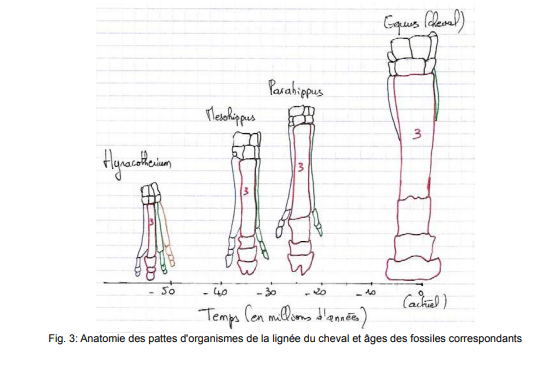 Equus (cheval)
Parahippus
Mesohippus
Hyracotherium
3
3
3
3
- 50
- 40
- 30
- 20
- 10
0
(actuel)
Temps (en millions d'années)
Fig. 3: Anatomie des pattes d'organismes de la lignée du cheval et âges des fossiles correspondants